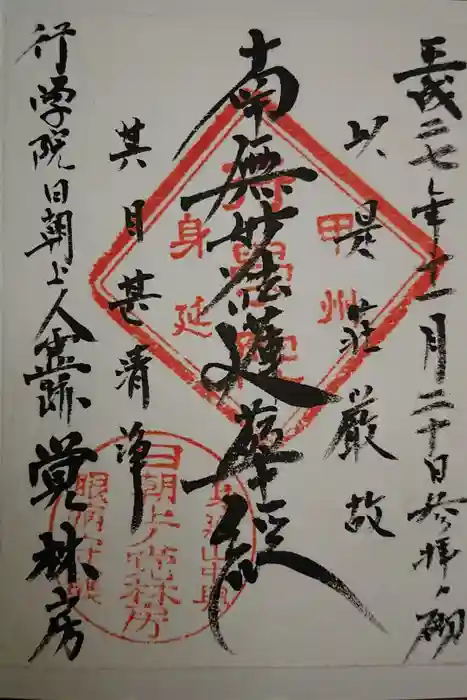 平成二七年十一月二十日参拝之砌
以是荘厳故
南無妙法蓮華経
其目甚清浄
行学院日朝上人霊跡
覚林房
甲州
身延
日朝上人覚林房